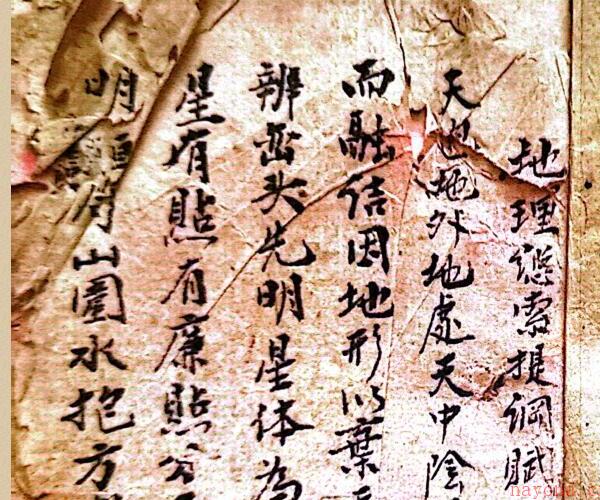 地理總索提綱賦
天包地外地處天中陰
而融結因地形以葉
辨峦头先明星体為
星有貼有廉貼
明 山圍水抱方